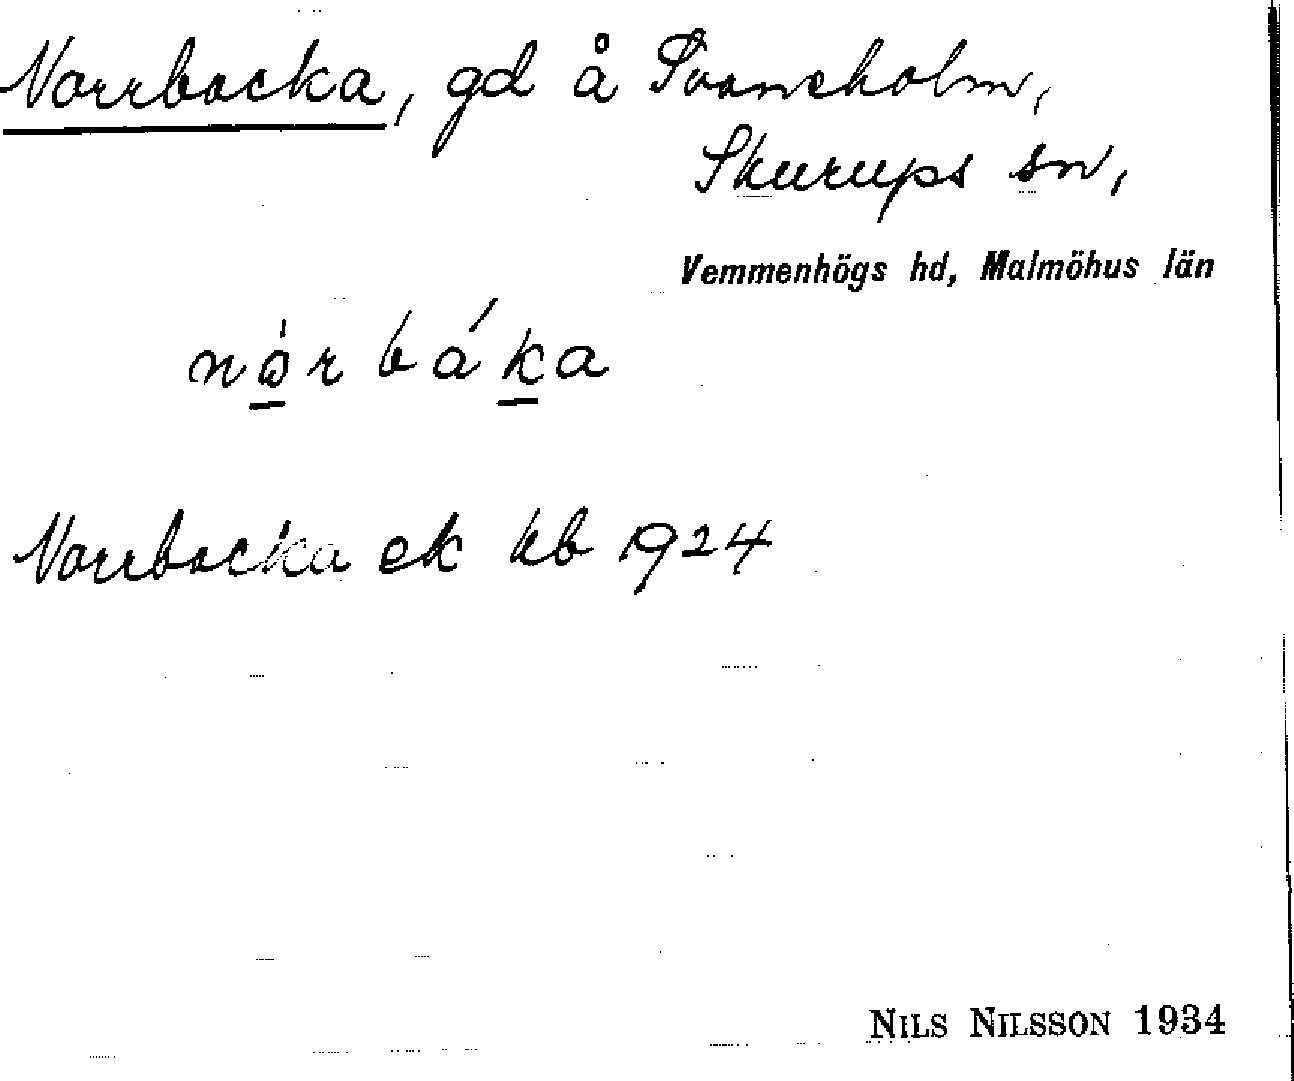 Norrbacka, gd å Svaneholm,
Skurups sn,
Vemmenhögs hd, Malmöhus län
Norrbacka ek kb 1924
NILS NILSSON 1934